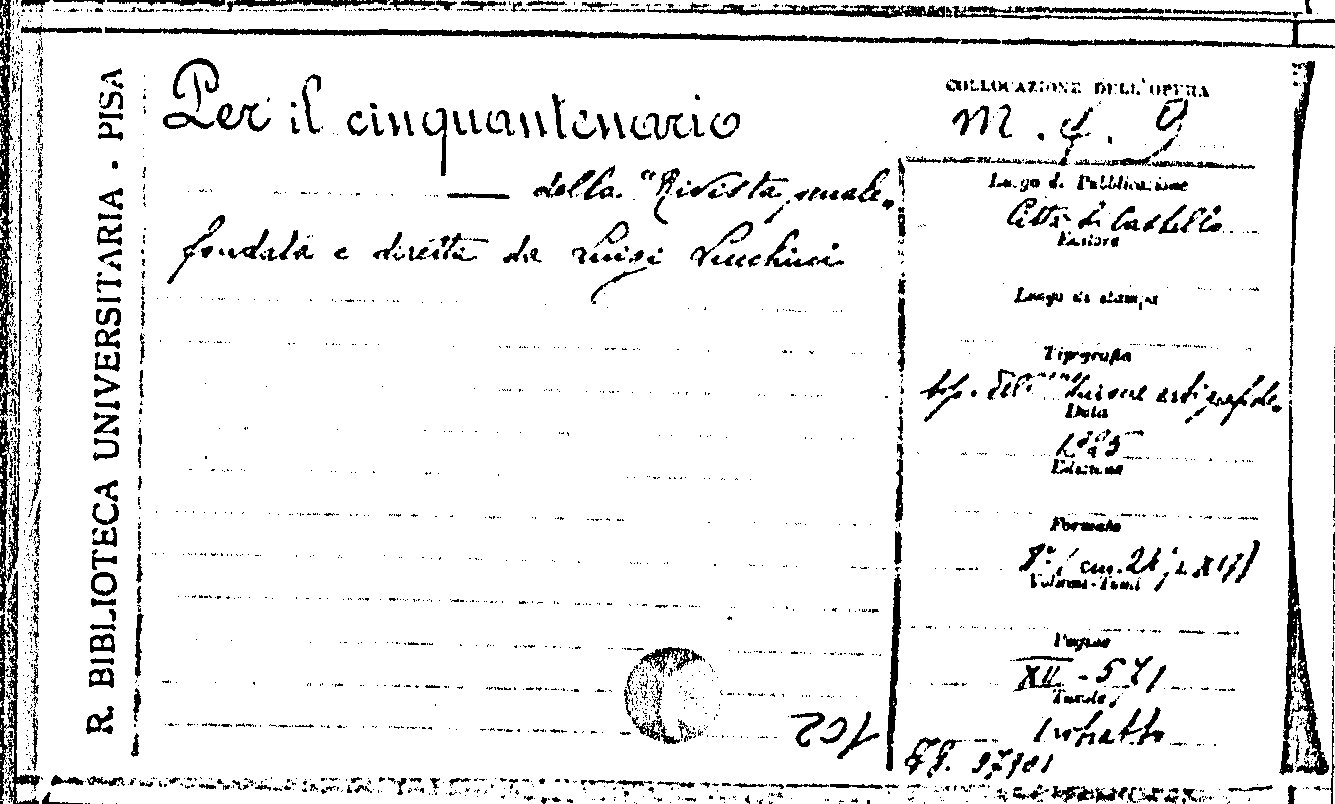 R. BIBLIOTECA UNIVERSITARIA - PISA
Per il cinquantenario
— della "Rivista penale„
fondata e diretta da Luigi Lucchini
COLLOCAZIONE DELL'OPERA
M. 4. 9
Luogo di Pubblicazione
Città di Castello
Editore
Luogo di stampa
Tipografia
tip. dell'
Data
Edizione
Formato
8° (cm.
Volumi-Tomi
Pagine
XII - 571
Tavole
1 ritratto
102